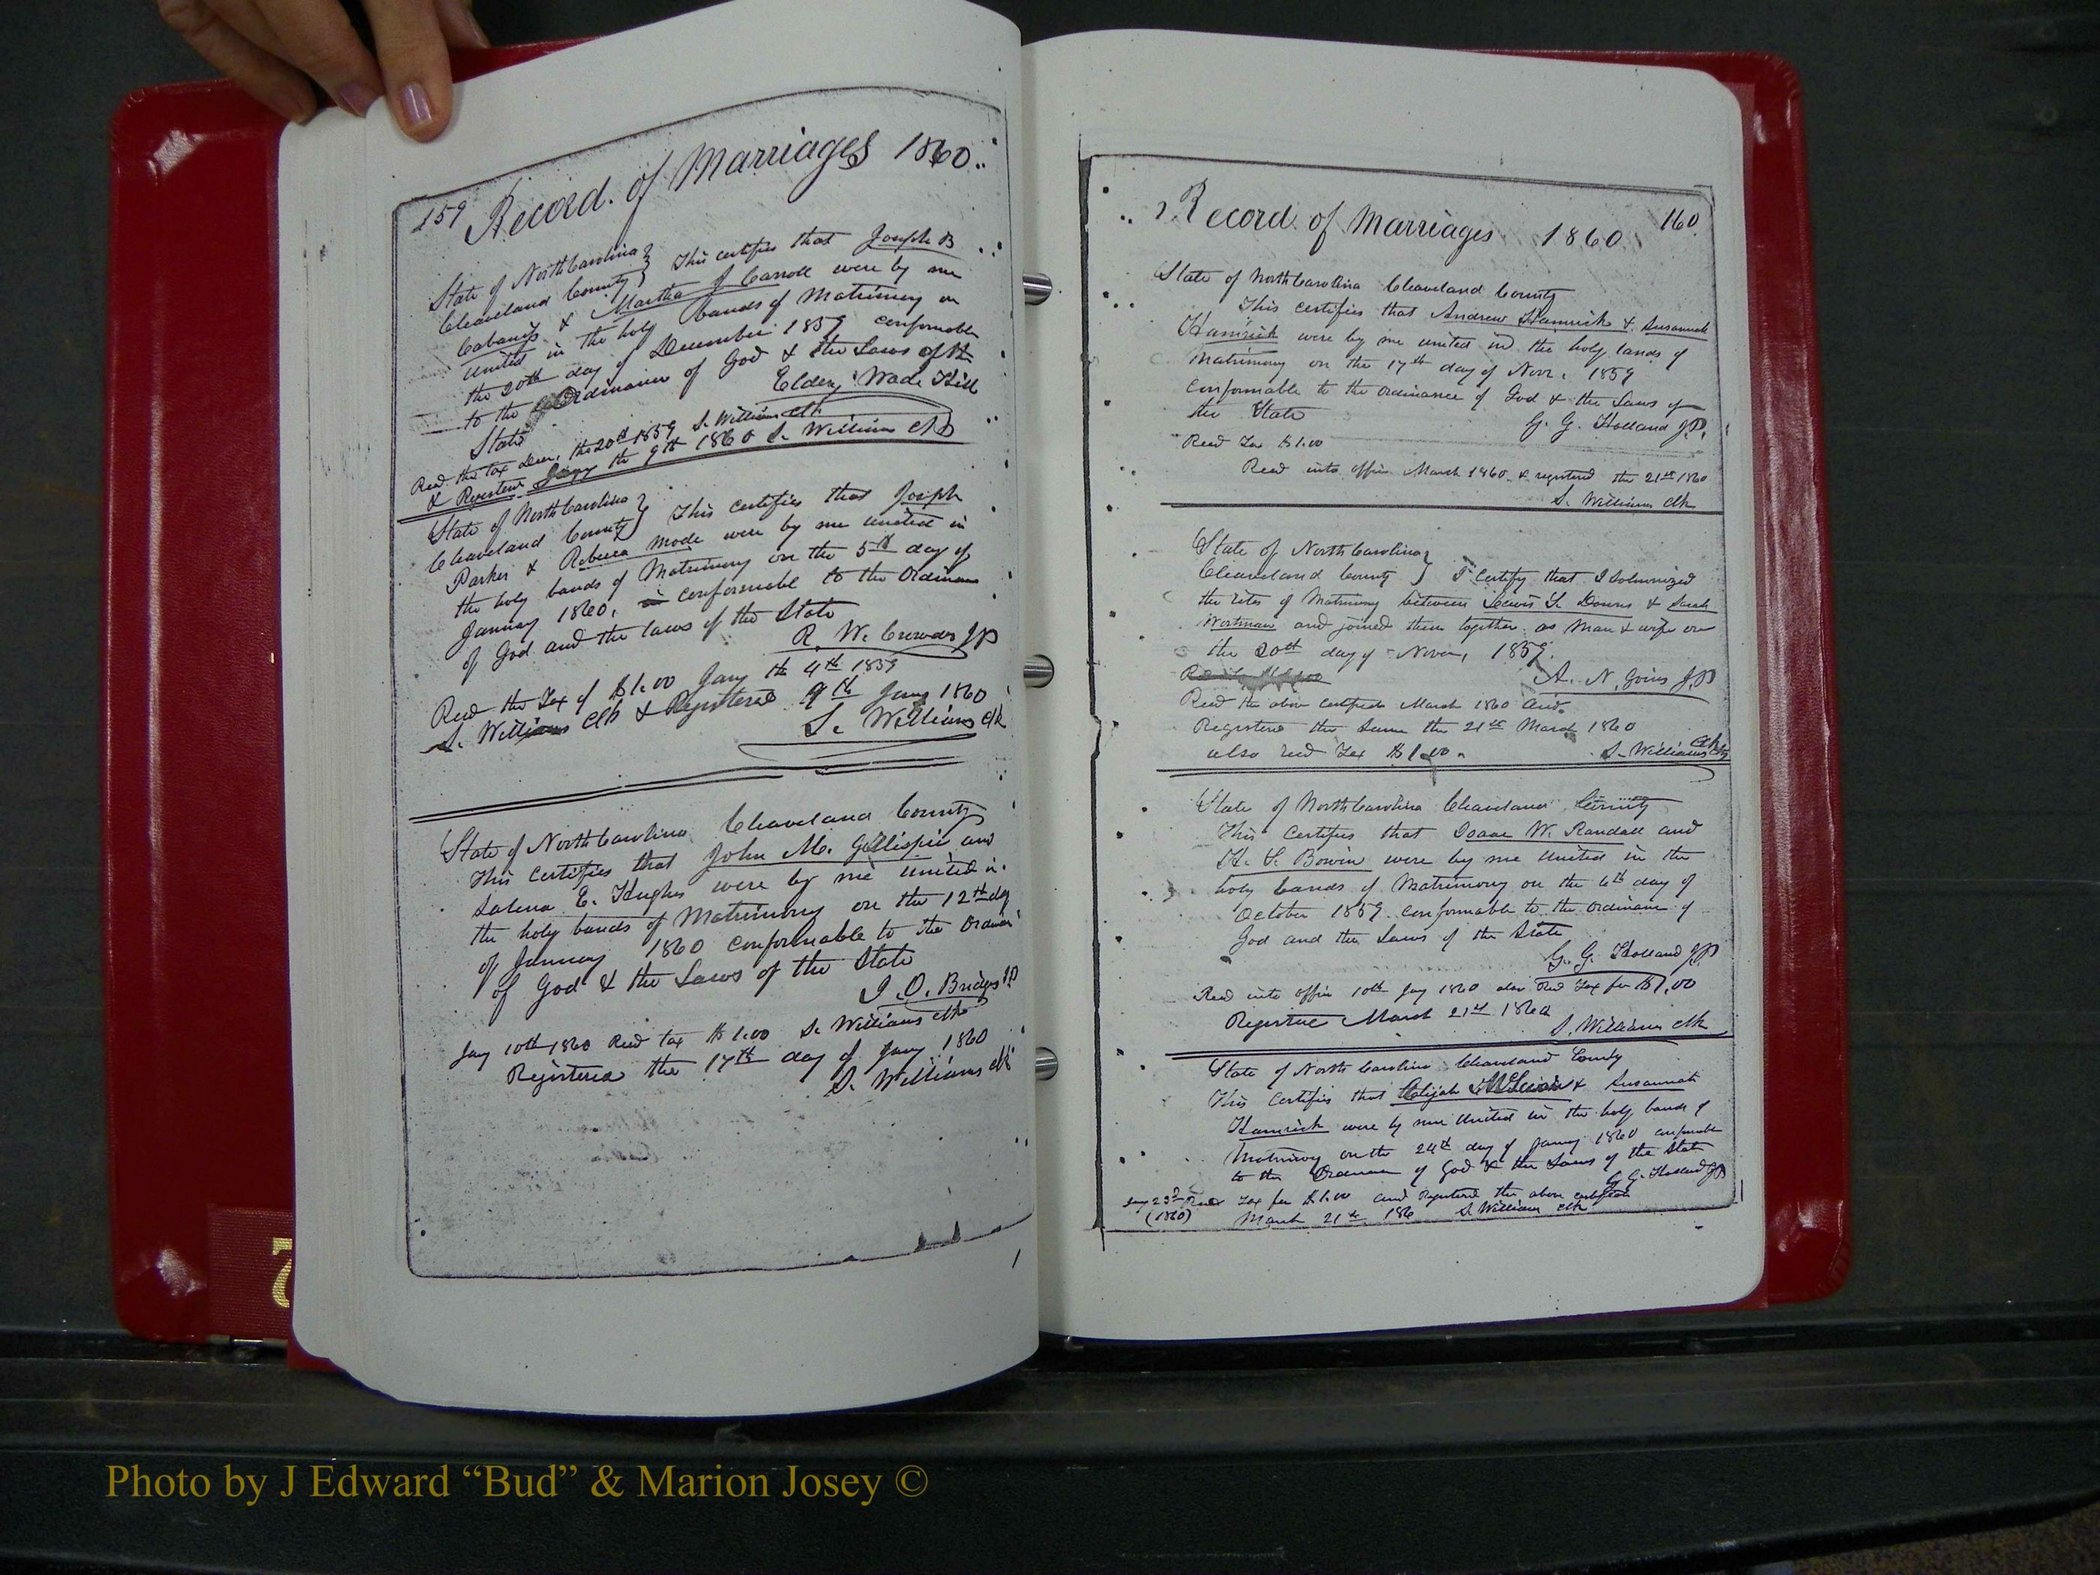 159 Record of Marriages 1860
State of North Carolina
Cleaveland County } This certifies that Joseph B
Cabaniss & Martha J Carroll were by me
united in the holy bands of Matrimony on
the 20th day of December 1859 conformable
to the Ordinance of God & the Laws of the
State Elder Wade Hill
Recd. the tax Decr. the 20th 1859 S. Williams Clk
& Registered Jany the 9th 1860 S. Williams Clk
State of North Carolina
Cleaveland County } This certifies that Joseph
Parker & Rebecca Mode were by me united in
the holy bands of Matrimony on the 5th day of
January 1860. in conformable to the Ordinance
of God and the laws of the State
R. W. Crowder J P
Recd the Tax of $1.00 Jany the 4th 1859
S. Williams Clk & Registered 9th Jany 1860
S. Williams Clk
State of North Carolina Cleaveland County
This certifies that John M. Gillispie and
Salena E. Hughes were by me united in
the holy bands of Matrimony on the 12th day
of January 1860 conformable to the Ordinance
of God & the Laws of the State
J. O. Bridges J P
Jany 10th 1860 Recd tax $1.00 S. Williams Clk
Registered the 17th day of Jany 1860
S. Williams Clk
Record of Marriages 1860 160
State of North Carolina Cleaveland County
This certifies that Andrew Hamrick & Susannah
Hamrick were by me united in the holy bands of
Matrimony on the 17th day of Novr. 1859
conformable to the ordinance of God & the Laws of
the State G. G. Holland J.P.
Recd Tax $1.00
Recd into office March 1860 & registered the 21st 1860
S. Williams Clk
State of North Carolina
Cleaveland County } I certify that I Solemnized
the rites of Matrimony between Lewis S. Downs & Sarah
Wortman and joined them together as Man & wife on
the 20th day of Novem, 1859.
A. N. Goins J.P
Recd the above certificate March 1860 and
Registered the Same the 21st March 1860
also recd Tax $1.00. S. Williams Clk
State of North Carolina Cleaveland County
This certifies that Isaac W. Randall and
H. S. Bowin were by me united in the
holy bands of Matrimony on the 6th day of
October 1859 conformable to the ordinance of
God and the Laws of the State
G. G. Holland J.P
Recd into office 10th Jany 1860 also Recd Tax for $1.00
Registered March 21st 1860
S. Williams Clk
State of North Carolina Cleaveland County
This certifies that & Susannah
Hamrick were by me united in the holy bands of
Matrimony on the 24th day of Jany 1860 conformable
to the Ordinance of God & the Laws of the State
G. G. Holland J.P
Jany 23rd Recd Tax for $1.00 and Registered the above certificate
(1860) March 21st 186 S. Williams Clk
Photo by J Edward “Bud” & Marion Josey ©